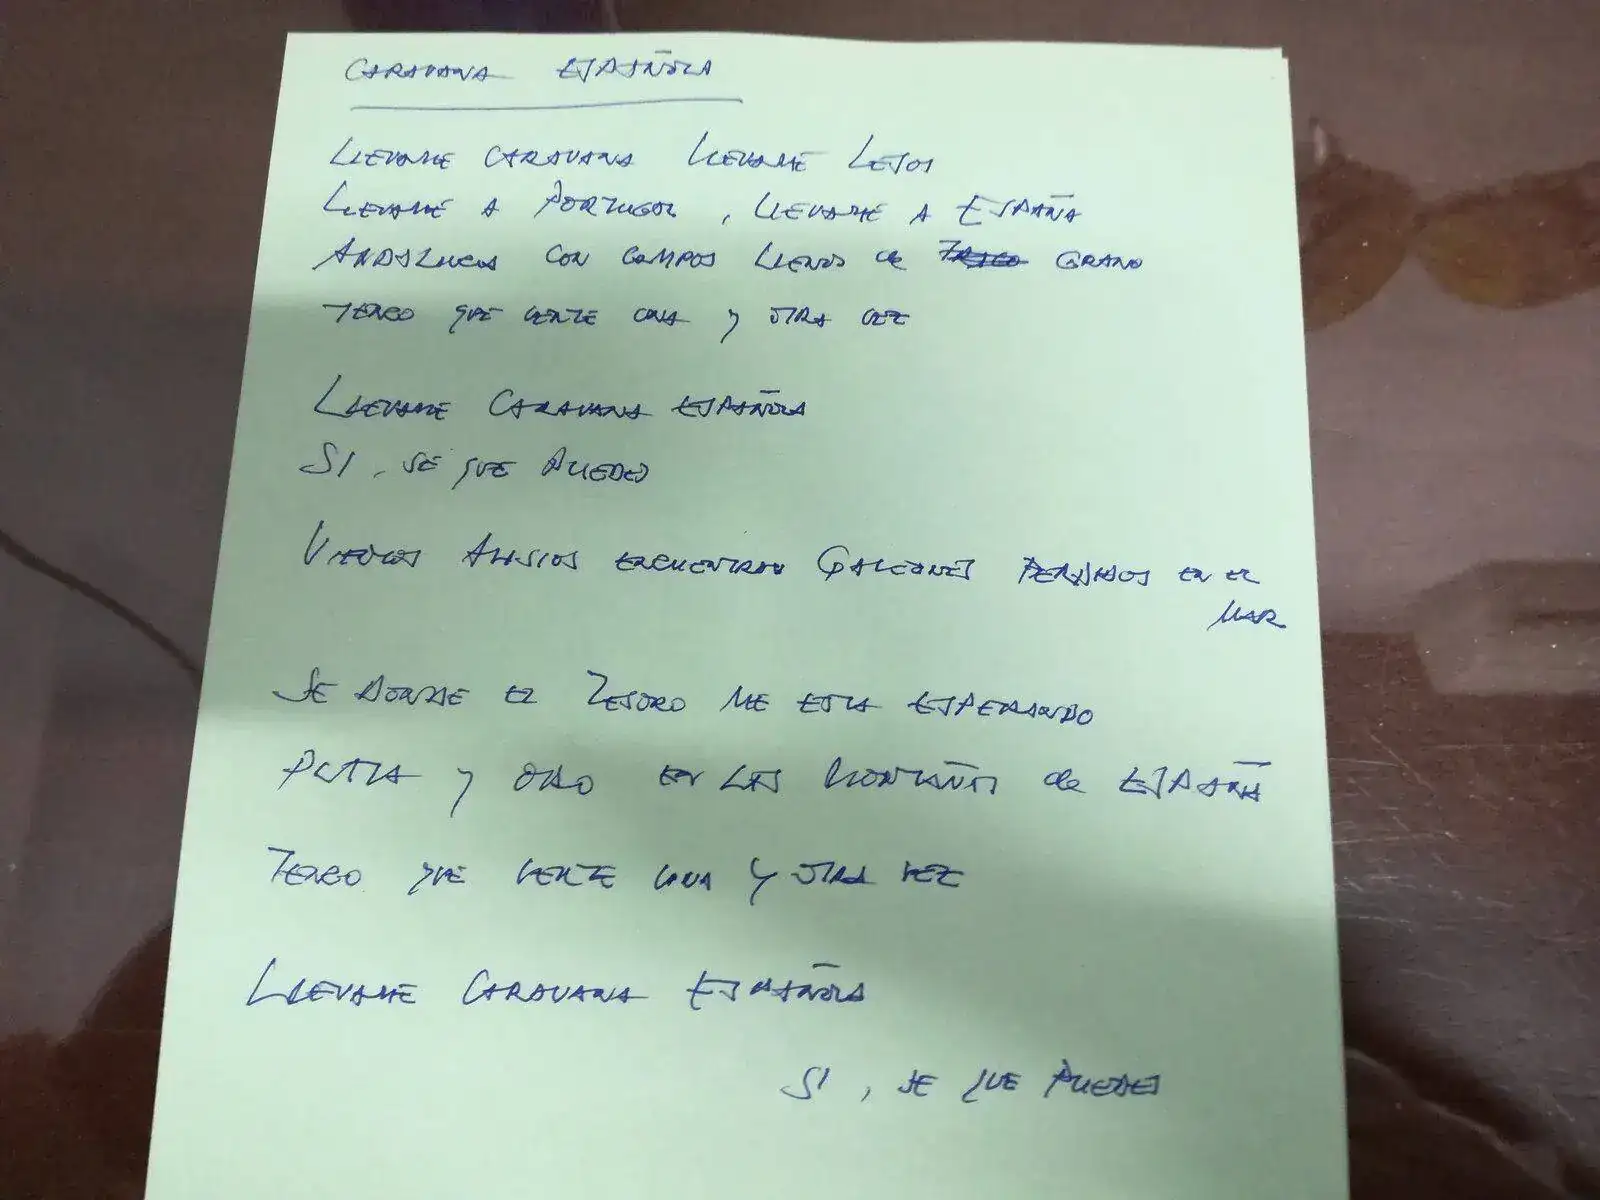 CARAVANA ESPAÑOLA
LLEVAME CARAVANA LLEVAME LEJOS
LLEVAME A PORTUGAL, LLEVAME A ESPAÑA
ANDALUCIA CON CAMPOS LLENOS DE GRANO
TENGO QUE VERTE UNA Y OTRA VEZ
LLEVAME CARAVANA ESPAÑOLA
SI, SE QUE PUEDES
VIENTOS ALISIOS ENCUENTRAN GALEONES PERDIDOS EN EL
MAR
SE DONDE EL TESORO ME ESTA ESPERANDO
PLATA Y ORO EN LAS MONTAÑAS de ESPAÑA
TENGO QUE VERTE UNA Y OTRA VEZ
LLEVAME CARAVANA ESPAÑOLA
SI, SE QUE PUEDES